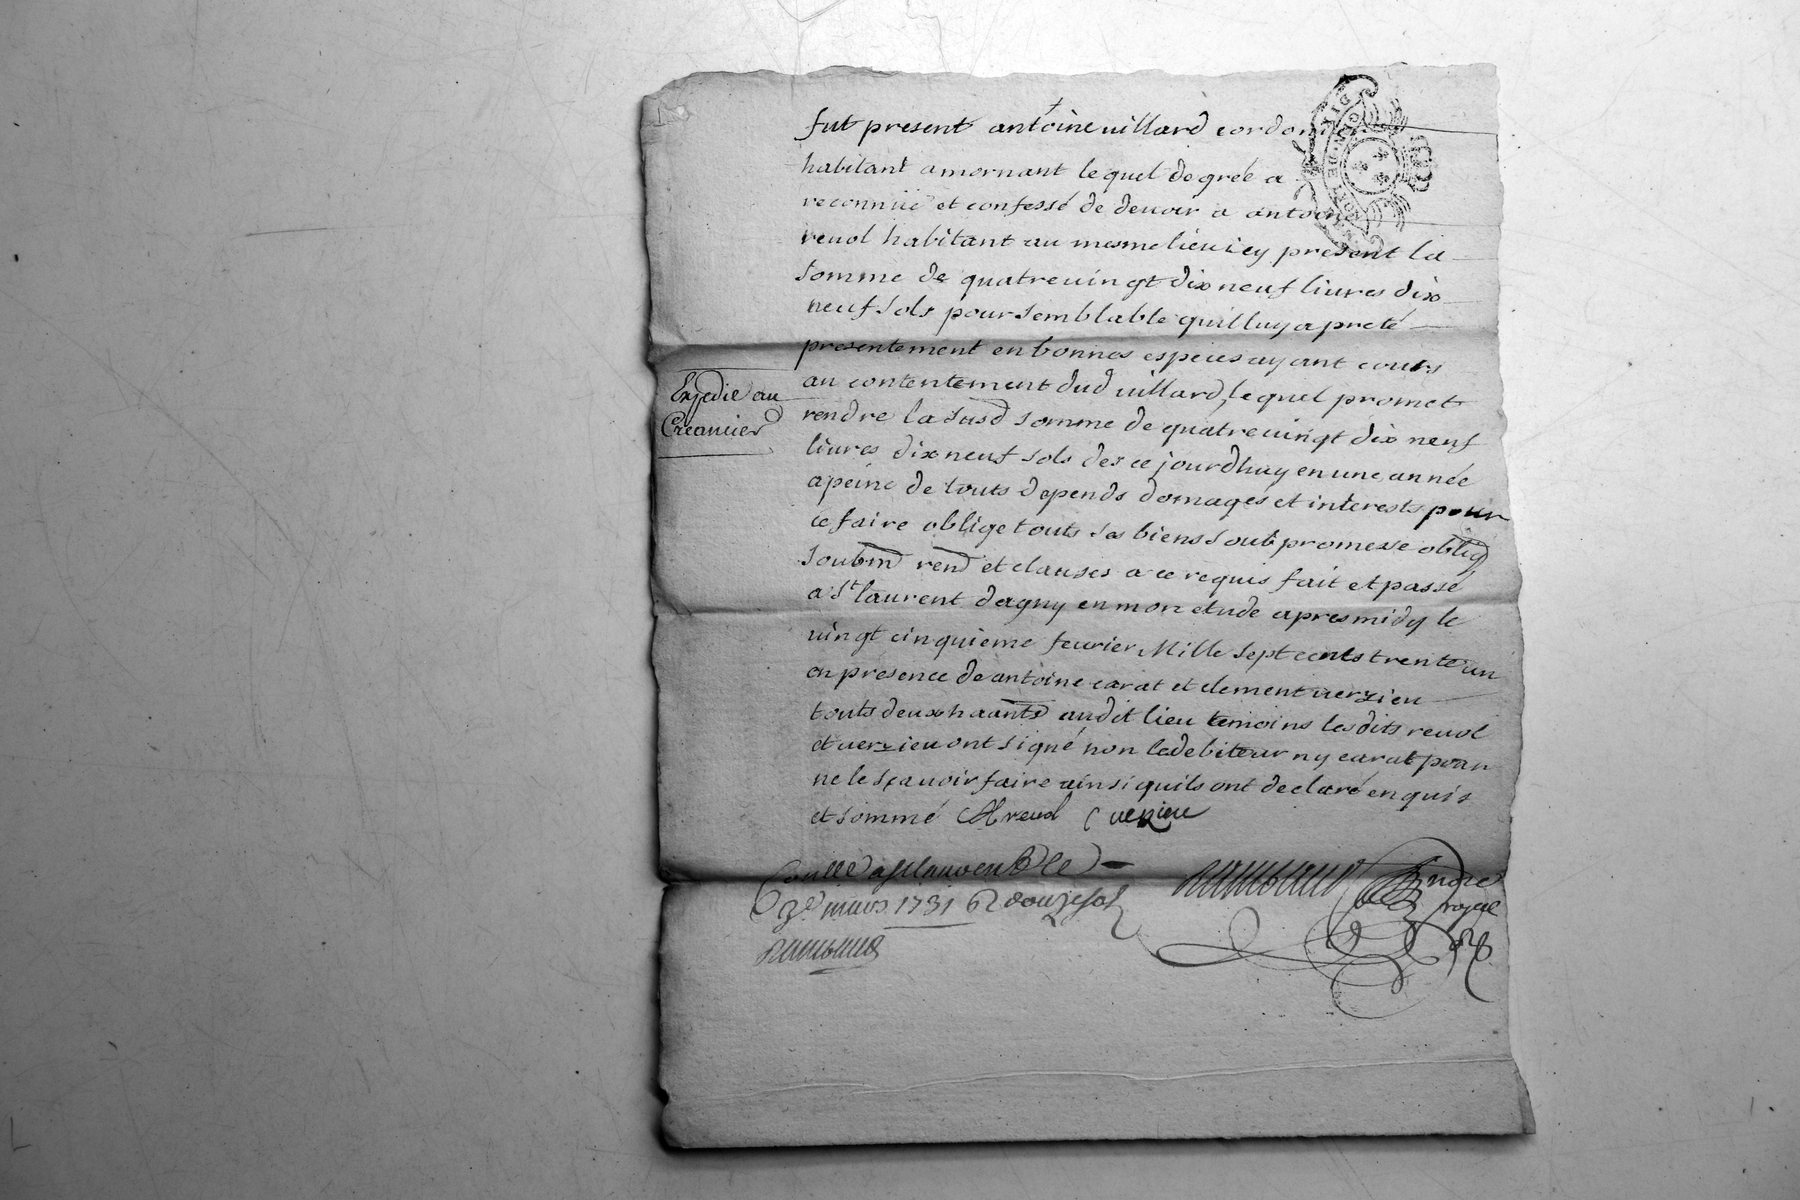 fut present antoine uillard cordon
habitant a mornant lequel de gréé a
reconnüe et confessé de deuoir a antoine
reuol habitant au mesme lieu icy present la
somme de quatreuingt dix neuf liures dix
neuf sols pour semblable quil luy a preté
presentement en bonnes especes ayant cours
au contentement dud uillard, lequel promet
rendre la susd somme de quatreuingt dix neuf
liures dix neuf sols des ce jourdhuy en une année
a peine de touts depends domages et interests pour
ce faire oblige touts ses biens soub promesse oblig
soubm rend et clauses a ce requis fait et passé
a St laurent dagny en mon etude apres midy le
uingt cinquieme feurier Mille sept cents trente un
en presence de antoine carat et clement uerzieu
touts deux haants audit lieu temoins lesdits reuol
et uerzieu ont signé non le debiteur ny carat pour
ne le sçauoir faire ainsi quils ont declaré enquis
et sommé A reuol C uerzieu
Expedié au
Creancier
le
3e mars 1731 douze sols
royal
DIX
DEN